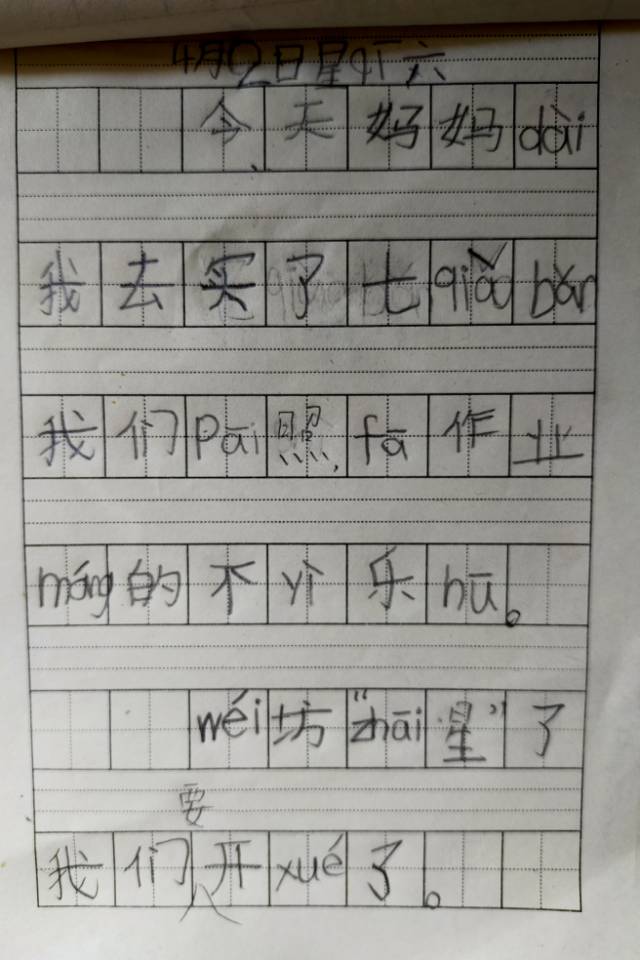 4月2日星qī六
今天妈妈dài
我去买了七qiǎobǎn
我们Pāi照fā作业
máng的不yì乐hū。
wéi坊“zhāi星”了
我们要开xué了。